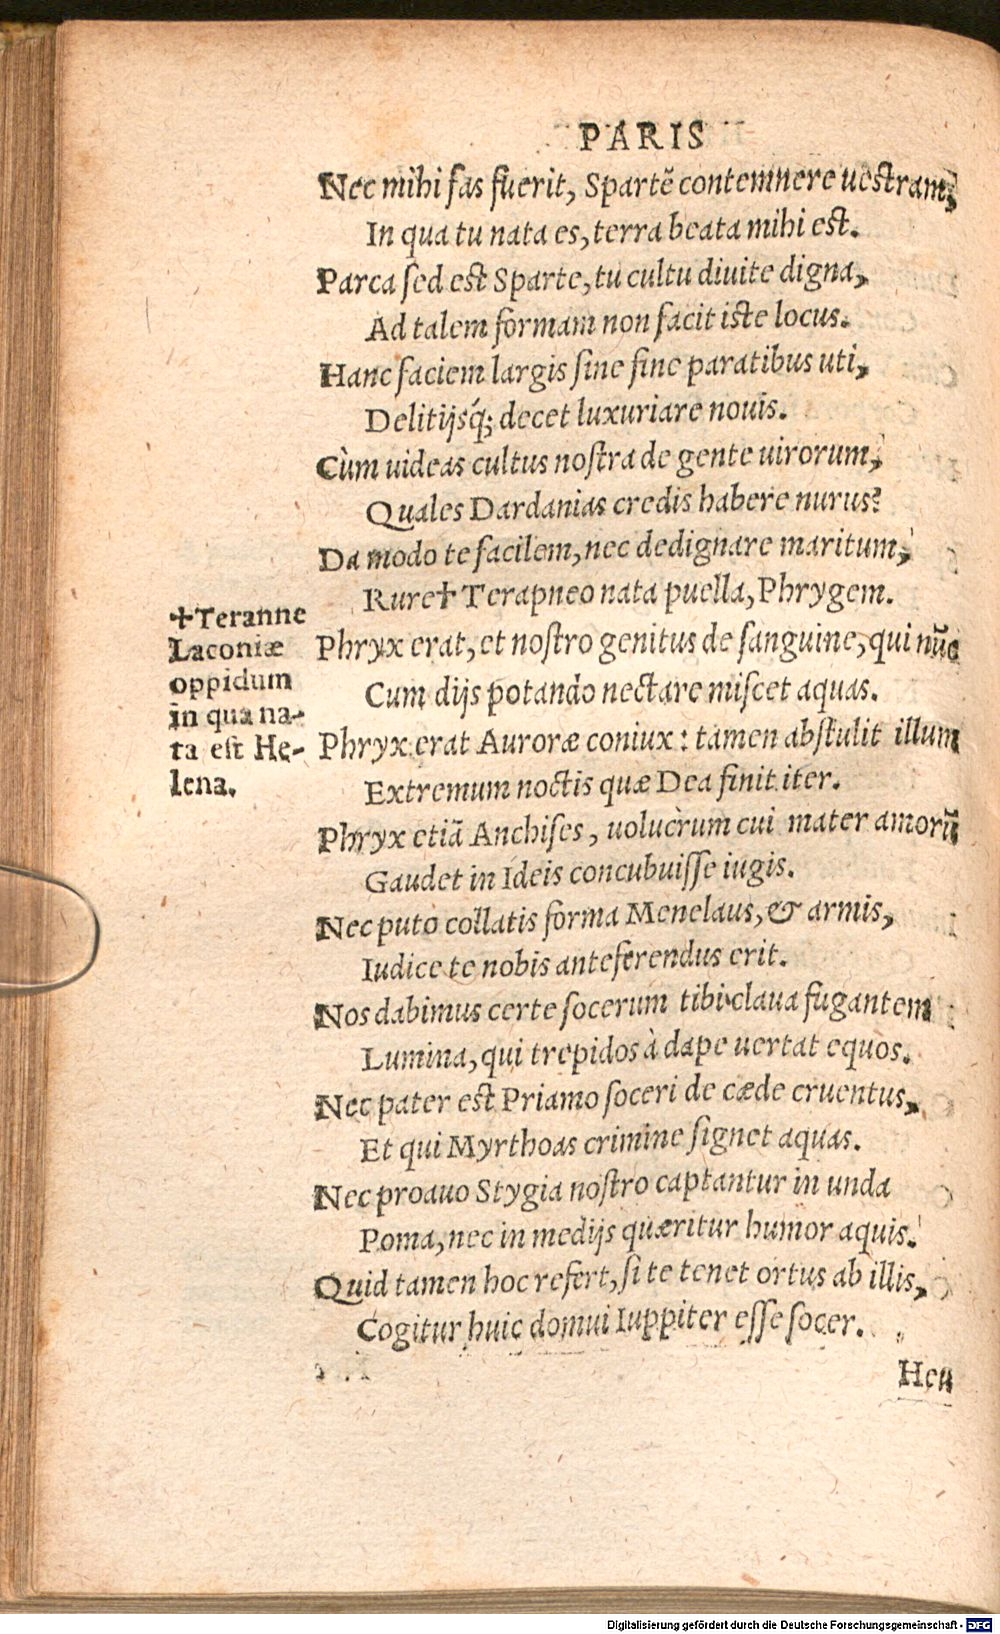 PARIS
Nec mihi fas fuerit, Spartẽ contemnere uestram,
In qua tu nata es, terra beata mihi est.
Parca sed est Sparte, tu cultu diuite digna,
Ad talem formam non facit iste locus.
Hanc faciem largis sine fine paratibus uti,
Delitijsq́; decet luxuriare nouis.
Cùm uideas cultus nostra de gente uirorum,
Quales Dardanias credis habere nurus?
Da modo te facilem, nec dedignare maritum,
Rure✝Terapneo nata puella, Phrygem.
✝Teranne
Laconiæ
oppidum
in qua na-
ta est He-
lena.
Phryx erat, et nostro genitus de sanguine, qui nũc
Cum dijs potando nectare miscet aquas.
Phryx erat Auroræ coniux: tamen abstulit illum
Extremum noctis quæ Dea finit iter.
Phryx etiã Anchises, uolucrum cui mater amorũ
Gaudet in Ideis concubuisse iugis.
Nec puto collatis forma Menelaus, & armis,
Iudice te nobis anteferendus erit.
Nos dabimus certe socerum tibi claua fugantem
Lumina, qui trepidos à dape uertat equos.
Nec pater est Priamo soceri de cæde cruentus,
Et qui Myrthoas crimine signet aquas.
Nec proauo Stygia nostro captantur in unda
Poma, nec in medijs quæritur humor aquis.
Quid tamen hoc refert, si te tenet ortus ab illis,
Cogitur huic domui Iuppiter esse socer.
Heu
Digitalisierung gefördert durch die Deutsche Forschungsgemeinschaft - DFG